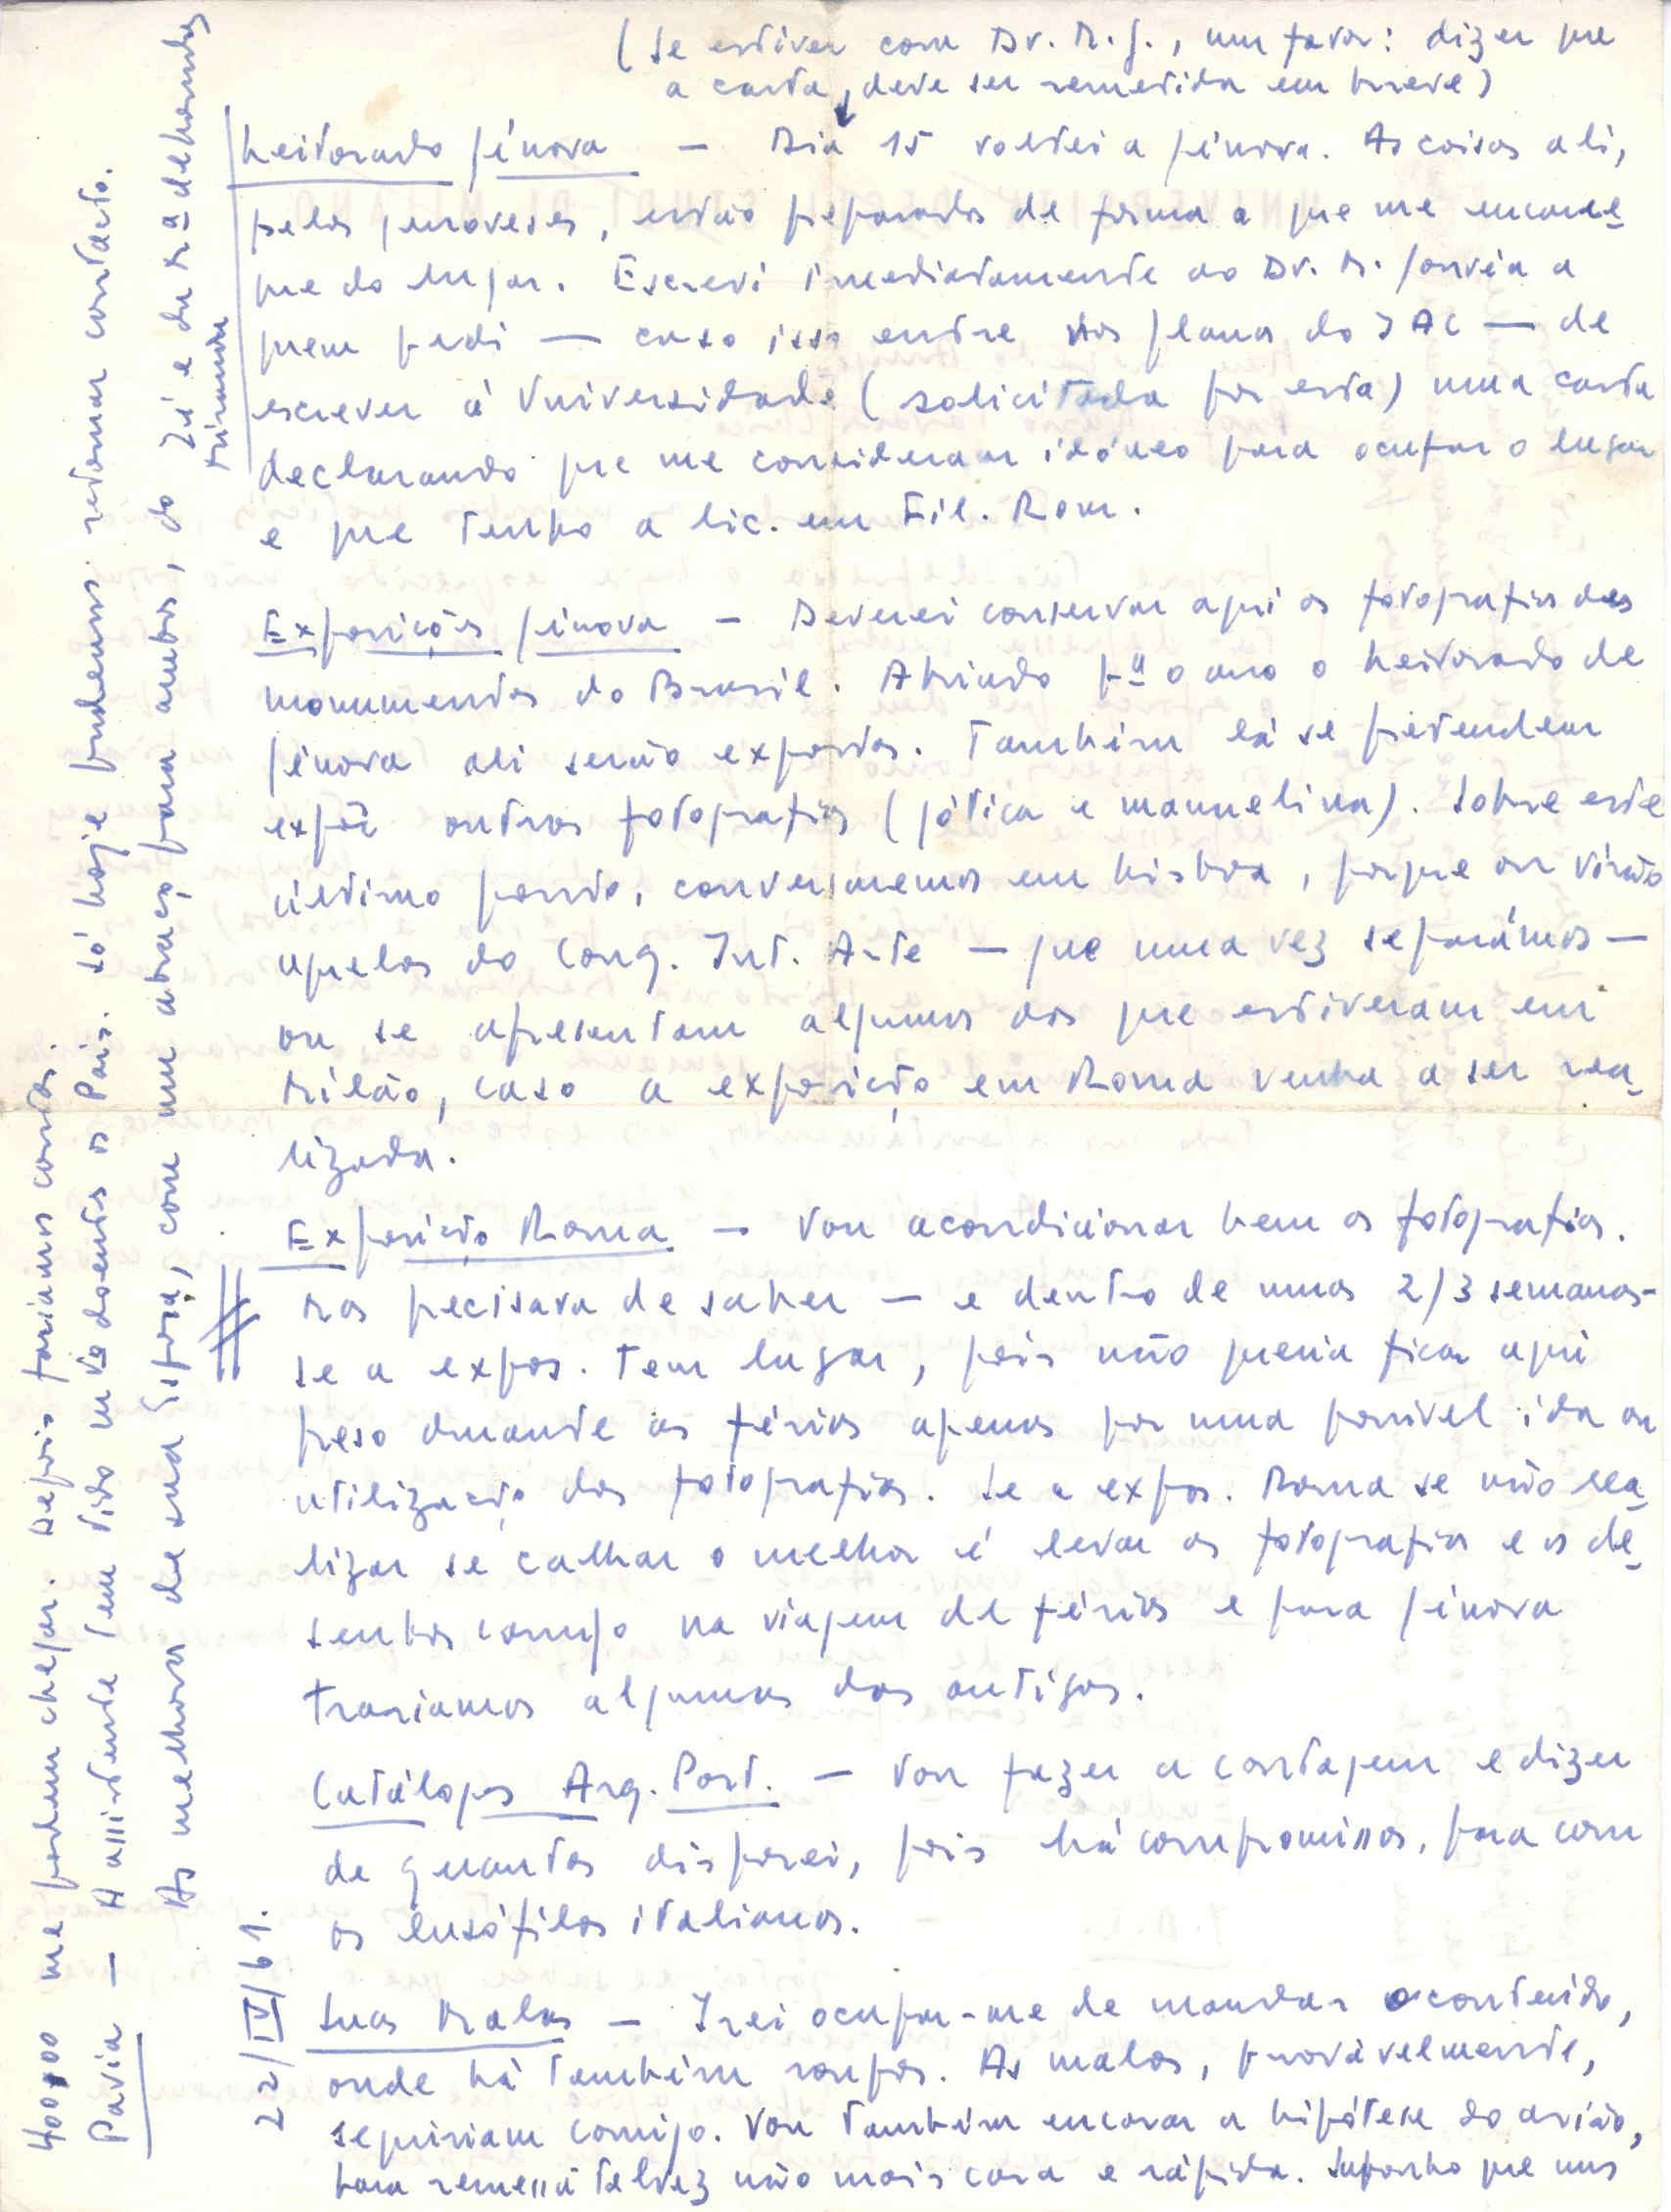 (Se estiver com Dr. M. G., um favor: dizer que
a carta, deve ser remetida em breve)
Leitorado Génova — Dia 15 voltei a Génova. As coisas ali,
pelos genoveses, estão preparadas de forma a que me encarre-
gue do lugar. Escrevi imediatamente ao Dr. M. Gouvêa a
quem pedi — caso isso entre nos planos do IAC — de
escrever à Universidade (solicitada por esta) uma carta
declarando que me consideram idóneo para ocupar o lugar
e que tenho a lic. em Fil. Rom.
Exposições Génova — Deverei conservar aqui as fotografias dos
monumentos do Brasil. Abrindo pª o ano o Leitorado de
Génova ali serão expostas. Também lá se pretendem
expôr outras fotografias (gótica e manuelina). Sobre este
último ponto, conversaremos em Lisboa, porque ou virão
aquelas do Cong. Int. Arte — que uma vez separámos —
ou se apresentam algumas das que estiveram em
Milão, caso a exposição em Roma venha a ser rea-
lizada.
Exposição Roma — Vou acondicionar bem as fotografias.
Mas precisava de saber — e dentro de umas 2/3 semanas-
se a expos. tem lugar, pois não queria ficar aqui
preso durante as férias apenas por uma possível ida ou
utilização das fotografias. Se a expos. Roma se não rea-
lizar se calhar o melhor é levar as fotografias e os de-
senhos comigo na viagem de férias e para Génova
traríamos algumas das antigas.
Catálogos Arq. Port. — Vou fazer a contagem e dizer
de quantos disporei, pois há compromissos, para com
os lusófilos italianos.
Suas Malas — Irei ocupar-me de mandar o conteúdo,
onde há também roupas. As malas, provàvelmente,
seguiriam comigo. Vou também encarar a hipótese do avião,
para remessa talvez não mais cara e rápida. Suponho que uns
400$00 me podem chegar. Depois faríamos contas.
Pavia — A assistente tem tido mtº doentes os Pais. Só hoje pudemos retomar contacto.
As melhoras de sua Esposa, com um abraço para ambos, do Zé e da Mª de Lourdes
Miranda
22/IV/61.